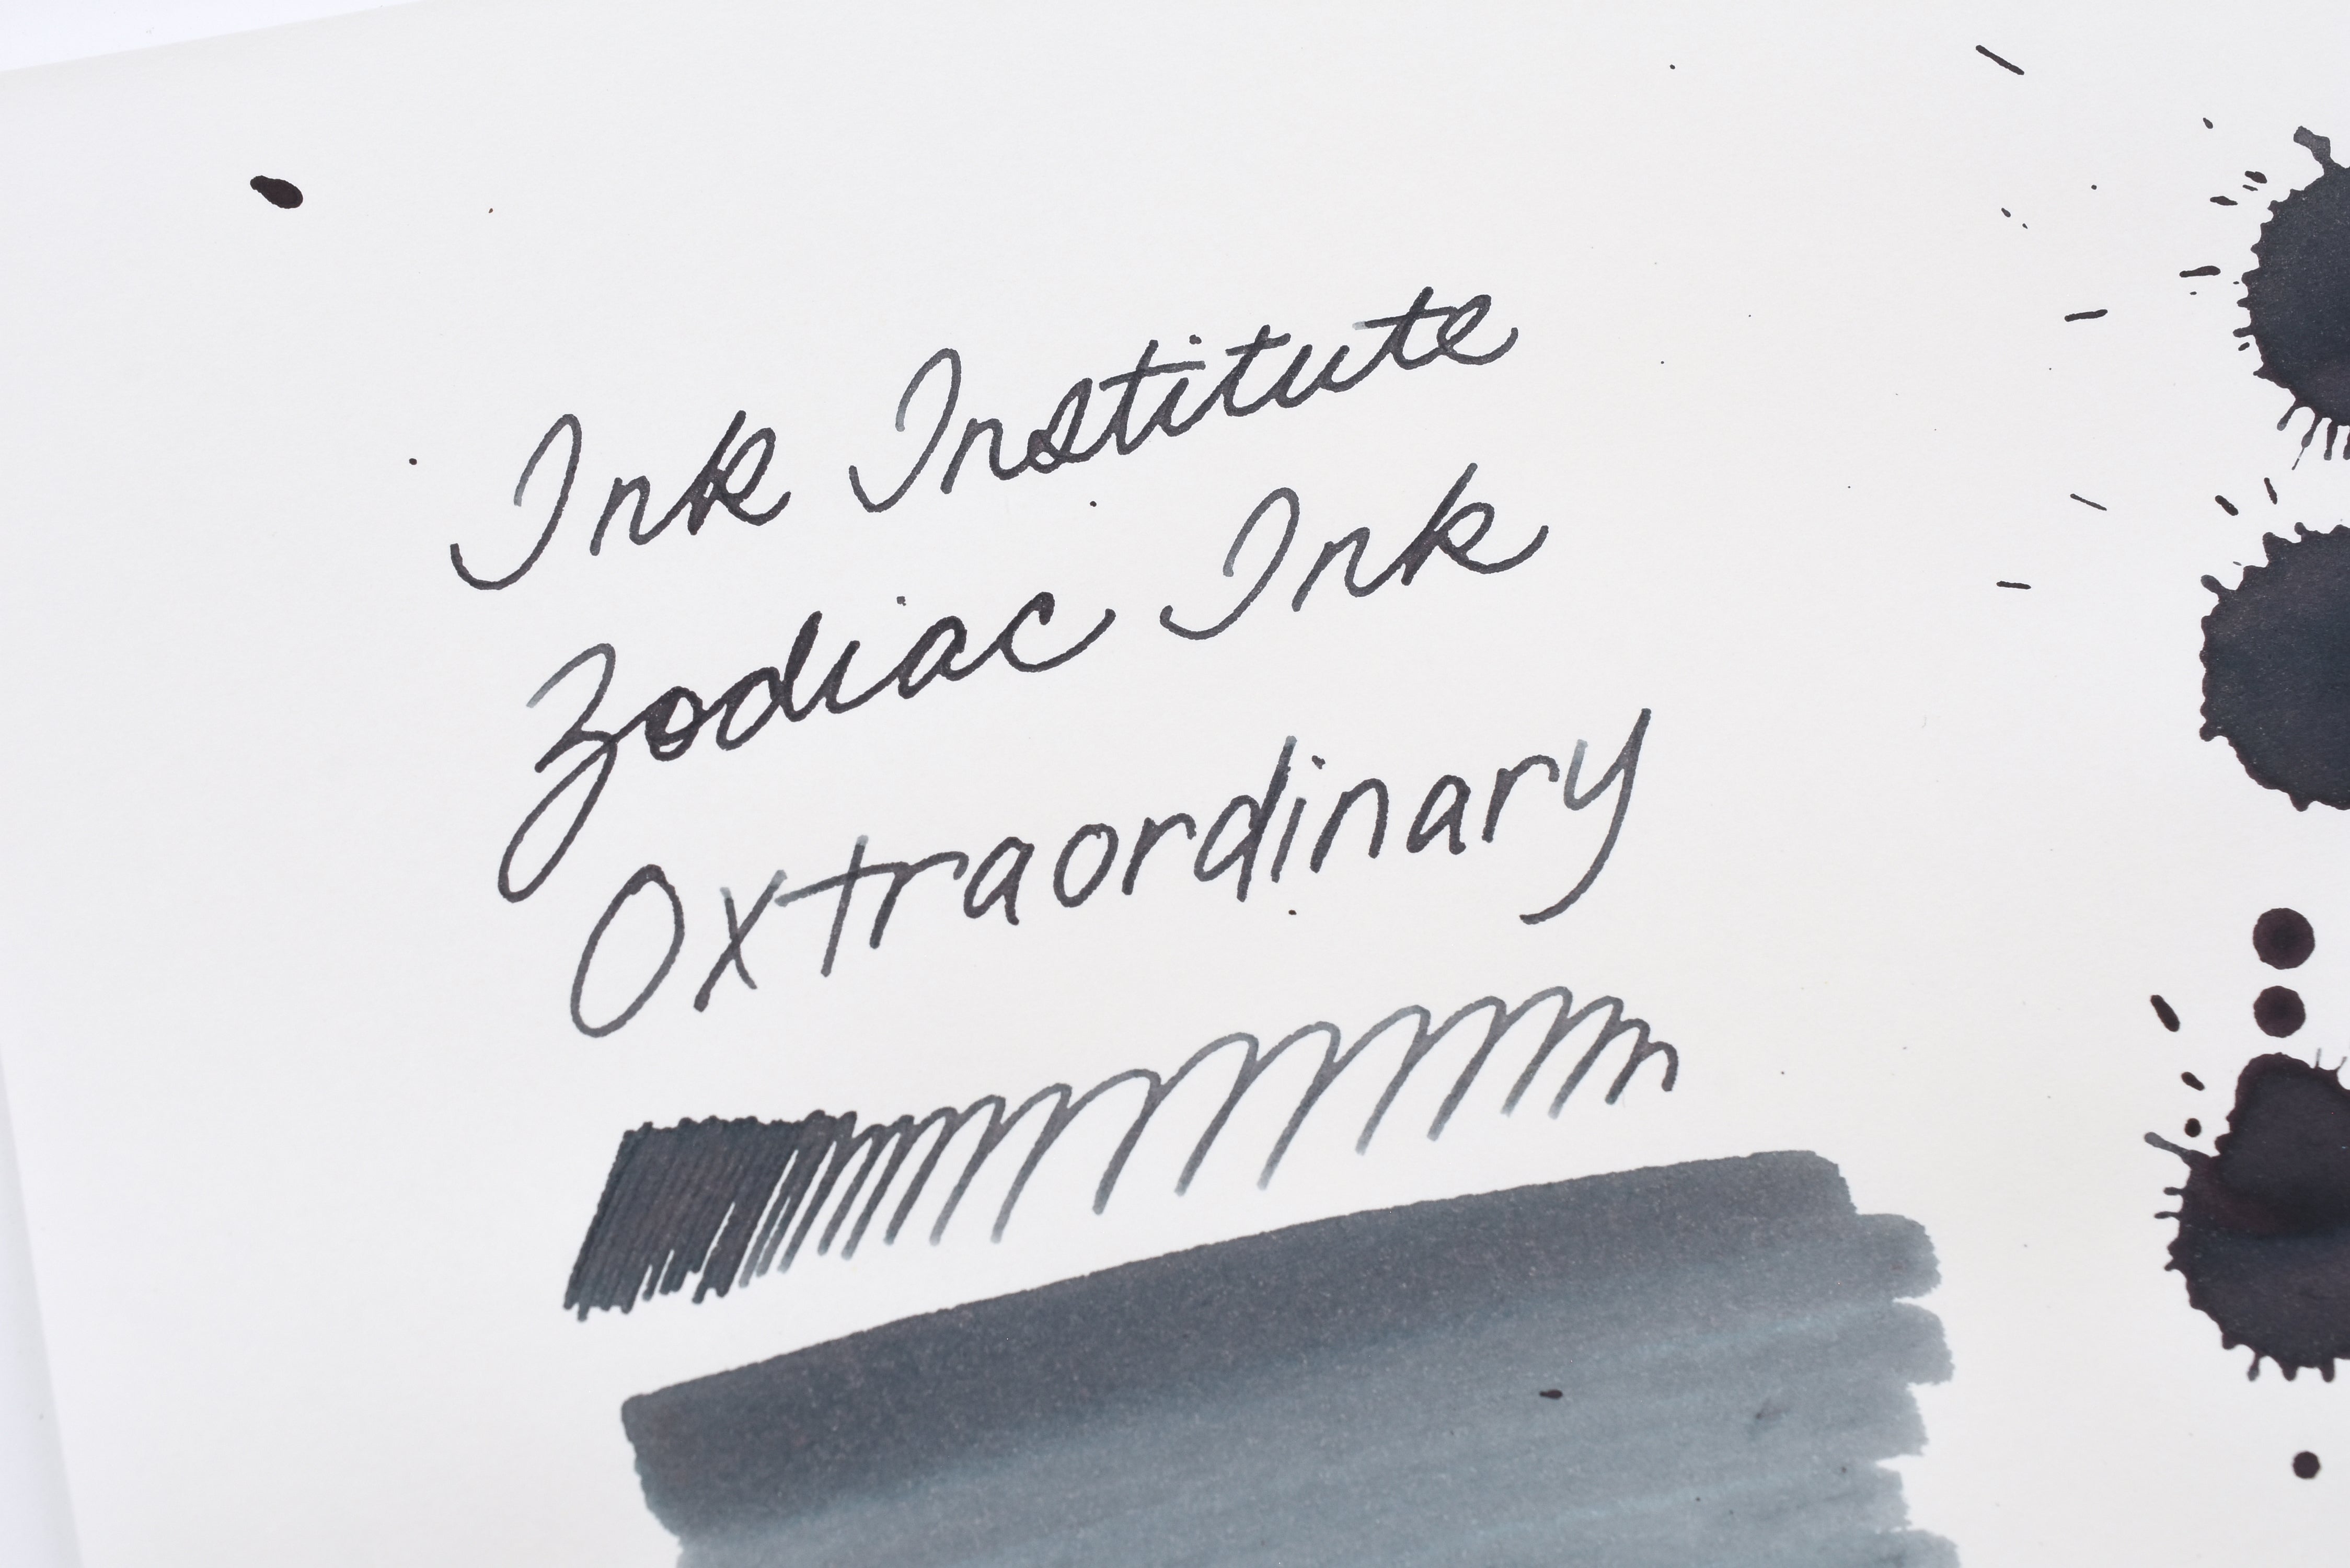 Ink Institute
Zodiac Ink
Oxtraordinary